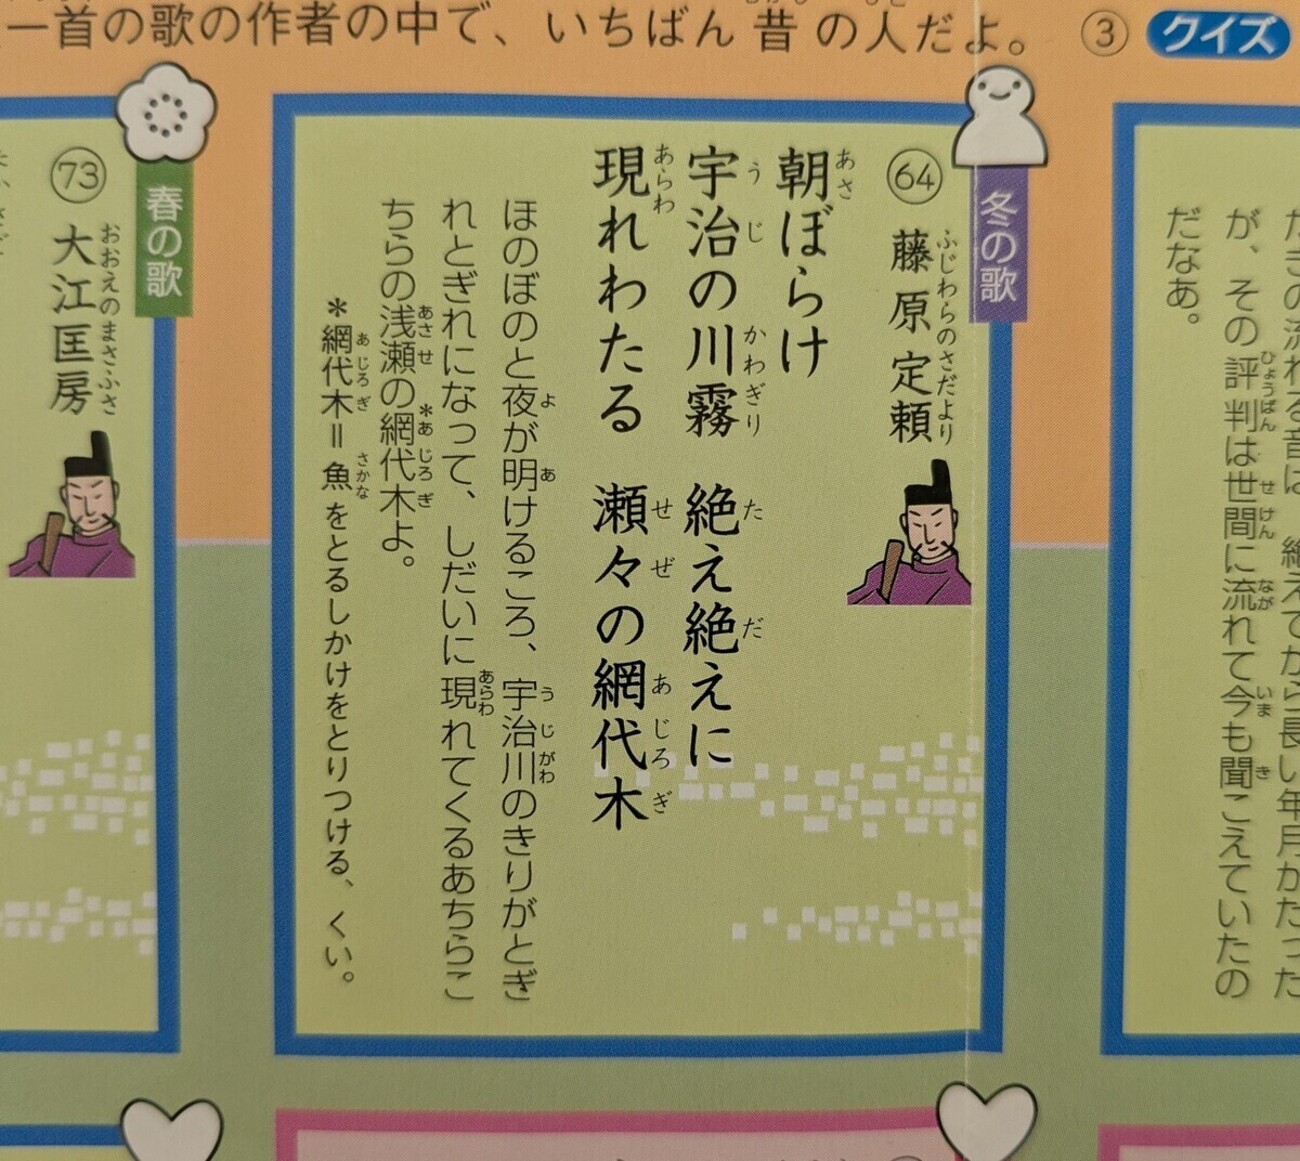 一首の歌の作者の中で、いちばん昔の人だよ。 ③ クイズ
が、その評判は世間に流れて今も聞こえていたの
だなあ。
冬の歌
64 藤原定頼
ふじわらのさだより
朝ぼらけ
あさ
宇治の川霧 絶え絶えに
うじ かわぎり た だ
現れわたる 瀬々の網代木
あらわ せぜ あじろぎ
ほのぼのと夜が明けるころ、宇治川のきりがとぎ
れとぎれになって、しだいに現れてくるあちらこ
ちらの浅瀬の*網代木よ。
*網代木＝魚をとるしかけをとりつける、くい。
春の歌
73 大江匡房
おおえのまさふさ